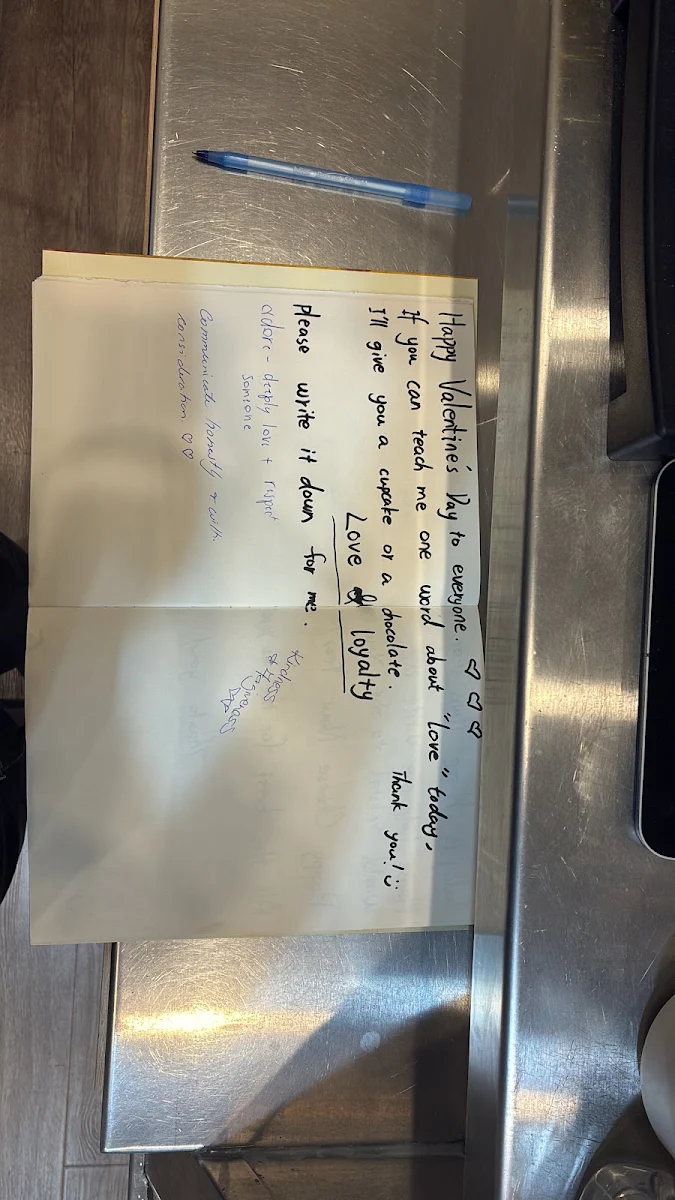 Happy Valentine's Day to everyone. ♡ ♡ ♡
If you can teach me one word about "love" today,
I'll give you a cupcake or a chocolate. Thank you! ü
Love & loyalty
please write it down for me.
adore - deeply love + respect
someone
Kindness
Giving
Communicate honestly + with
consideration. ♡♡